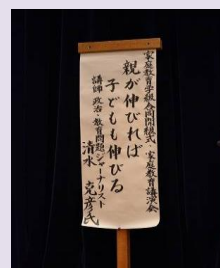 家庭教育学級合同開級式・家庭教育講演会
親が伸びれば
子どもも伸びる
講師 政治・教育問題ジャーナリスト
清水 克彦氏